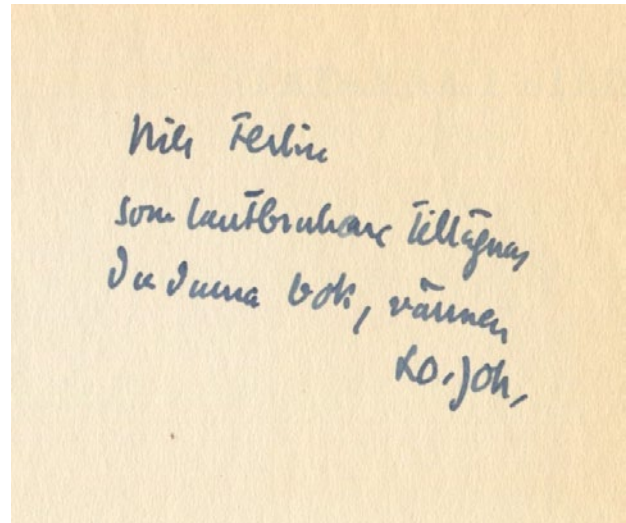 Nils Ferlin
som lantbrukare tillägnas
Du denna bok, vännen
Lo-Joh,